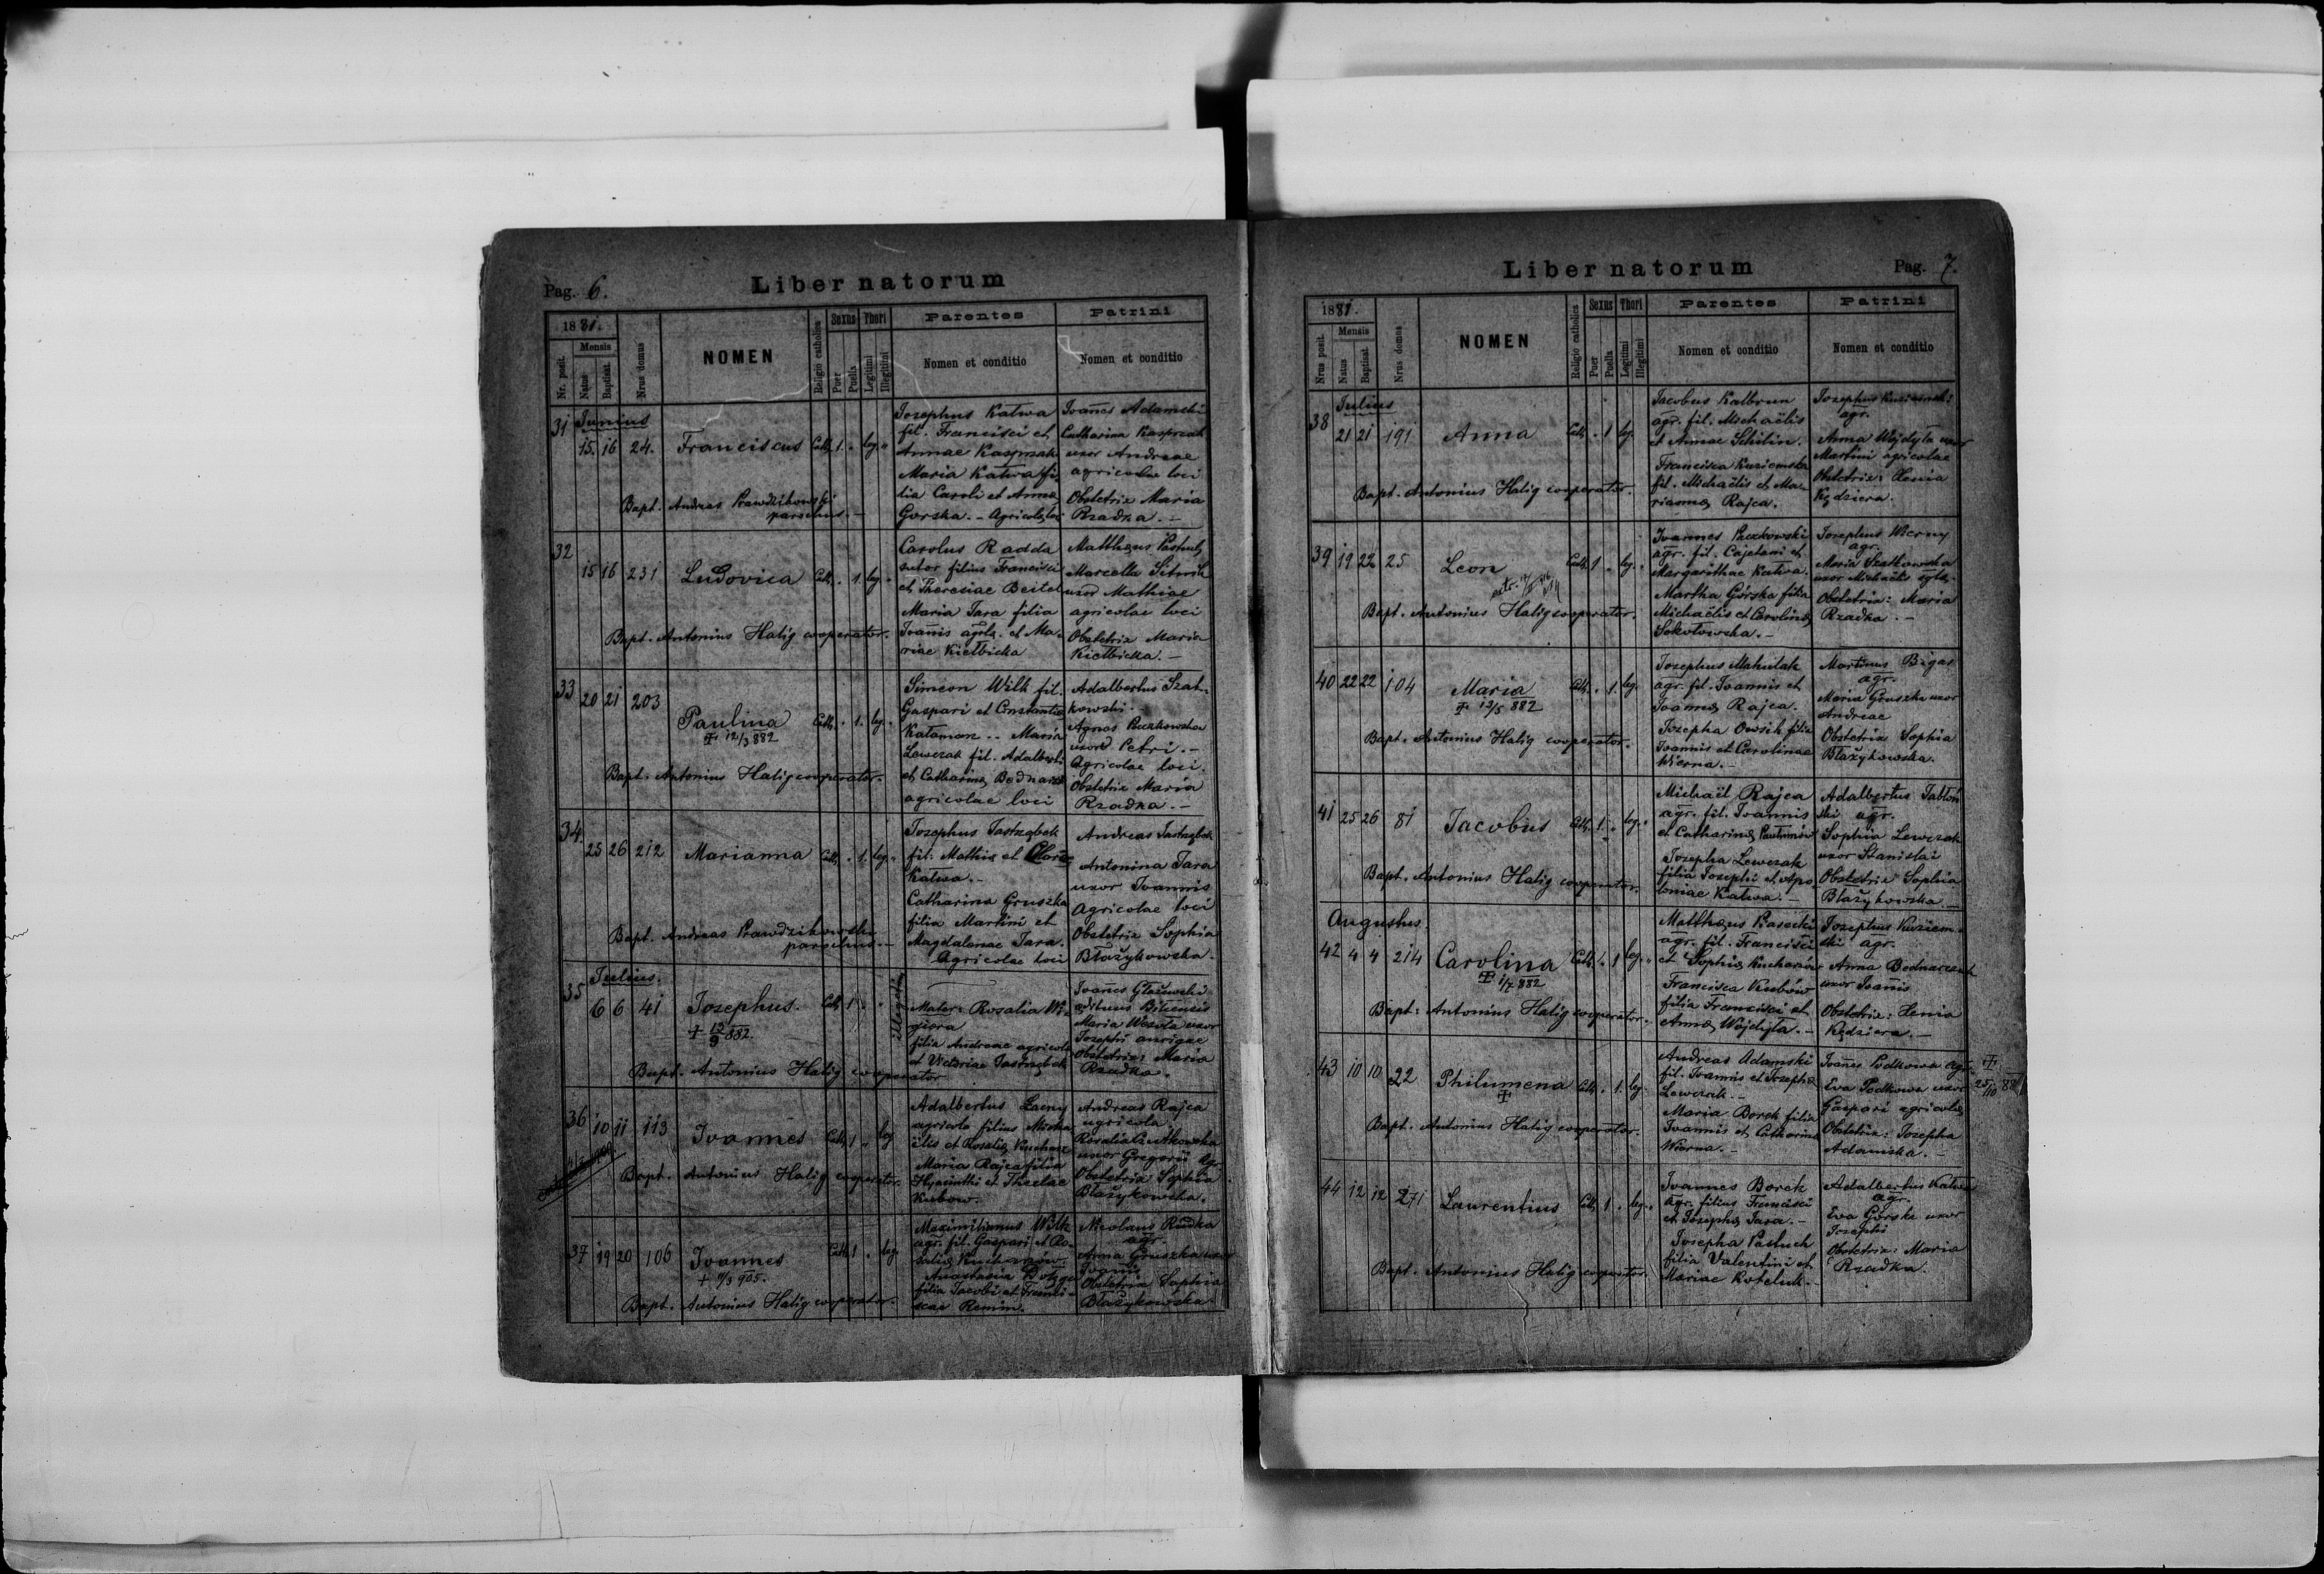 Pag. 6.
Liber natorum
1881.
Nr. posit.
Mensis
Natus
Baptisat.
Nrus domus
NOMEN
Religio catholica
Sexus
Puer
Puella
Thori
Legitimi
Illegitimi
Parentes
Nomen et conditio
Patrini
Nomen et conditio
31 Junius
15. 16 24. Franciscus Cath. 1. " leg. "
Bapt. Andreas Prawdzikowski
parochus. -
Josephus Katwa
fil. Francisci et
Annae Kasprzak
Maria Katwa fi-
lia Caroli et Annae
Gorska. - Agricolae loci
Joanes Adamski
Catharina Kasprzak
uxor Andreae
agricolae loci
Obstetrix Maria
Rzadka. -
32
15 16 231 Ludovica Cath. " 1. leg. "
Bapt. Antonius Halig cooperator.
Carolus Radda
sutor filius Francisci
et Theresiae Beitel
Maria Tara filia
Joannis agrlae. et Ma-
riae Kiełbicka
Matthaeus Pastuch
Marcella Sitnik
uxor Mathiae
agricolae loci
Obstetrix Maria
Kiełbicka. -
33
20 21 203
Paulina Cath. " 1. leg. "
+ 12/3 882
Bapt: Antonius Halig cooperator.
Simeon Wilk fil.
Gaspari et Constantiae
Kataman -. Maria
Lewczak fil. Adalberti
et Catharinae Bednarczuk
agricolae loci
Adalbertus Szat-
kowski. -
Agnes Puczkowska
uxor Petri. -
Agricolae loci.
Obstetrix Maria
Rzadka. -
34
25 26 212 Marianna Cath. " 1. leg. "
Bapt. Andreas Prawdzikowski
parochus. -
Josephus Jastrzębek
fil: Mathiae et Clarae
Katwa. -
Catharina Gruszka
filia Martini et
Magdalenae Tara.
Agricolae loci
Andreas Jastrzębek
Antonina Tara
uxor Joannis
Agricolae loci
Obstetrix Sophia
Błażykowska.
35 Julius.
6 6 41 Josephus. Cath. 1 " "
+ 19/9 882.
Bapt. Antonius Halig cooperator
Mater: Rosalia Wi-
giera
filia Andreae agricolae
et Victoriae Jastrzębek
Joanes Głażewski
aedituus Bilcensis
Maria Wesoła uxor
Josephi aurigae
Obstetrix: Maria
Rzadka.
36
10 11 113 Joannes Cath. 1 " leg
Bapt. Antonius Halig cooperator.
Adalbertus Łacny
agricola filius Micha-
ëlis et Rosaliae Kucharz
Maria Rajca filia
Hyacinthi et Theclae
Kubow.
Andreas Rajca
agricola.
Rosalia Czutkowska
uxor Gregorii agr.
Obstetrix: Sophia
Błażykowska.
37 19 20 106 Joannes Cath. 1 " leg
+ 11/3 905.
Bapt. Antonius Halig cooperator.
Maximilianus Wilk
agr. fil. Gaspari et Ro-
saliae Kucharzów.
Anastasia
filia Jacobi et Franci-
scae Remin.
Nicolaus Rudka
agr.
Anna Gruszka uxor
Joanis
Obstetrix Sophia
Błażykowska
Liber natorum
Pag. 7.
1881.
Nrus posit.
Mensis
Natus
Baptisat.
Nrus domus
NOMEN
Religio catholica
Sexus
Puer
Puella
Thori
Legitimi
Illegitimi
Parentes
Nomen et conditio
Patrini
Nomen et conditio
38 Julius
21 21 191 Anna Cath. " 1 leg.
Bapt. Antonius Halig cooperator.
Jacobus Kalbrun
agr. fil. Michaëlis
et Annae Schilin.
Francisca Kuziemska
fil. Michaëlis et Ma-
riannae Rajca.
Josephus Kuziemski
agr.
Anna Wojdyła uxor
Martini agricolae
Obstetrix: Xenia
Kędziera.
39 19 22 25 Leon Cath. 1 " leg. "
Bapt. Antonius Halig cooperator.
Joannes Puczkowski
agr. fil. Cajetani et
Margarithae Katwa.
Martha Górska filia
Michaëlis et Carolinae
Sokołowska. -
Josephus Wierny
agr.
Maria Szatkowska
uxor Michaëlis
Obstetrix: Maria
Rzadka. -
40 22 22 104 Maria Cath. " 1. leg.
+ 13/5 882
Bapt. Antonius Halig cooperator.
Josephus Mahulak
agr. fil. Joannis et
Joannae Rajca.
Josepha Owsik filia
Joannis et Carolinae
Wierna. -
Martinus Bigas
agr.
Maria Gruszka uxor
Andreae
Obstetrix Sophia
Błażykowska.
41 25 26 81 Jacobus Cath. 1. " leg. "
Bapt. Antonius Halig cooperator.
Michaël Rajca
agr. fil. Joannis
et Catharinae
Josepha Lewczak
filia Josephi et Apo-
loniae Katwa. -
Adalbertus Jabłoń
ski agr.
Sophia Lewczak
uxor Stanislai
Obstetrix Sophia
Błażykowska. -
Augustus.
42 4 4 214 Carolina Cath. " 1 leg. "
+ 1/7 882
Bapt: Antonius Halig cooperator.
Matthaeus Kasecki
agr. fil. Francisci
et Sophiae Kucharów
Francisca Kubów
filia Francisci et
Annae Wojdyła. -
Josephus Kuziem-
ski agr.
Anna Bednarczuk
uxor Joanis
Obstetrix: Xenia
Kędziera. -
43 10 10 22 Philumena Cath. " 1. leg.
+
Bapt. Antonius Halig cooperator.
Andreas Adamski
fil. Joannis et Josephae
Lewczak. -
Maria Borek filia
Joannis et Catharinae
Wierna. -
Joanes Podkowa agr.
Eva Podkowa uxor
Gaspari agricolae
Obstetrix: Josepha
Adamska. -
+
25/10 88
44 12 12 271 Laurentius Cath. 1 " leg. "
Bapt. Antonius Halig cooperator.
Joannes Borek
agr. filius Francisci
et Josephae Tara. -
Josepha Pastuch
filia Valentini et
Mariae Koteluk. -
Adalbertus Katwa
agr.
Eva Górska uxor
Josephi
Obstetrix: Maria
Rzadka.